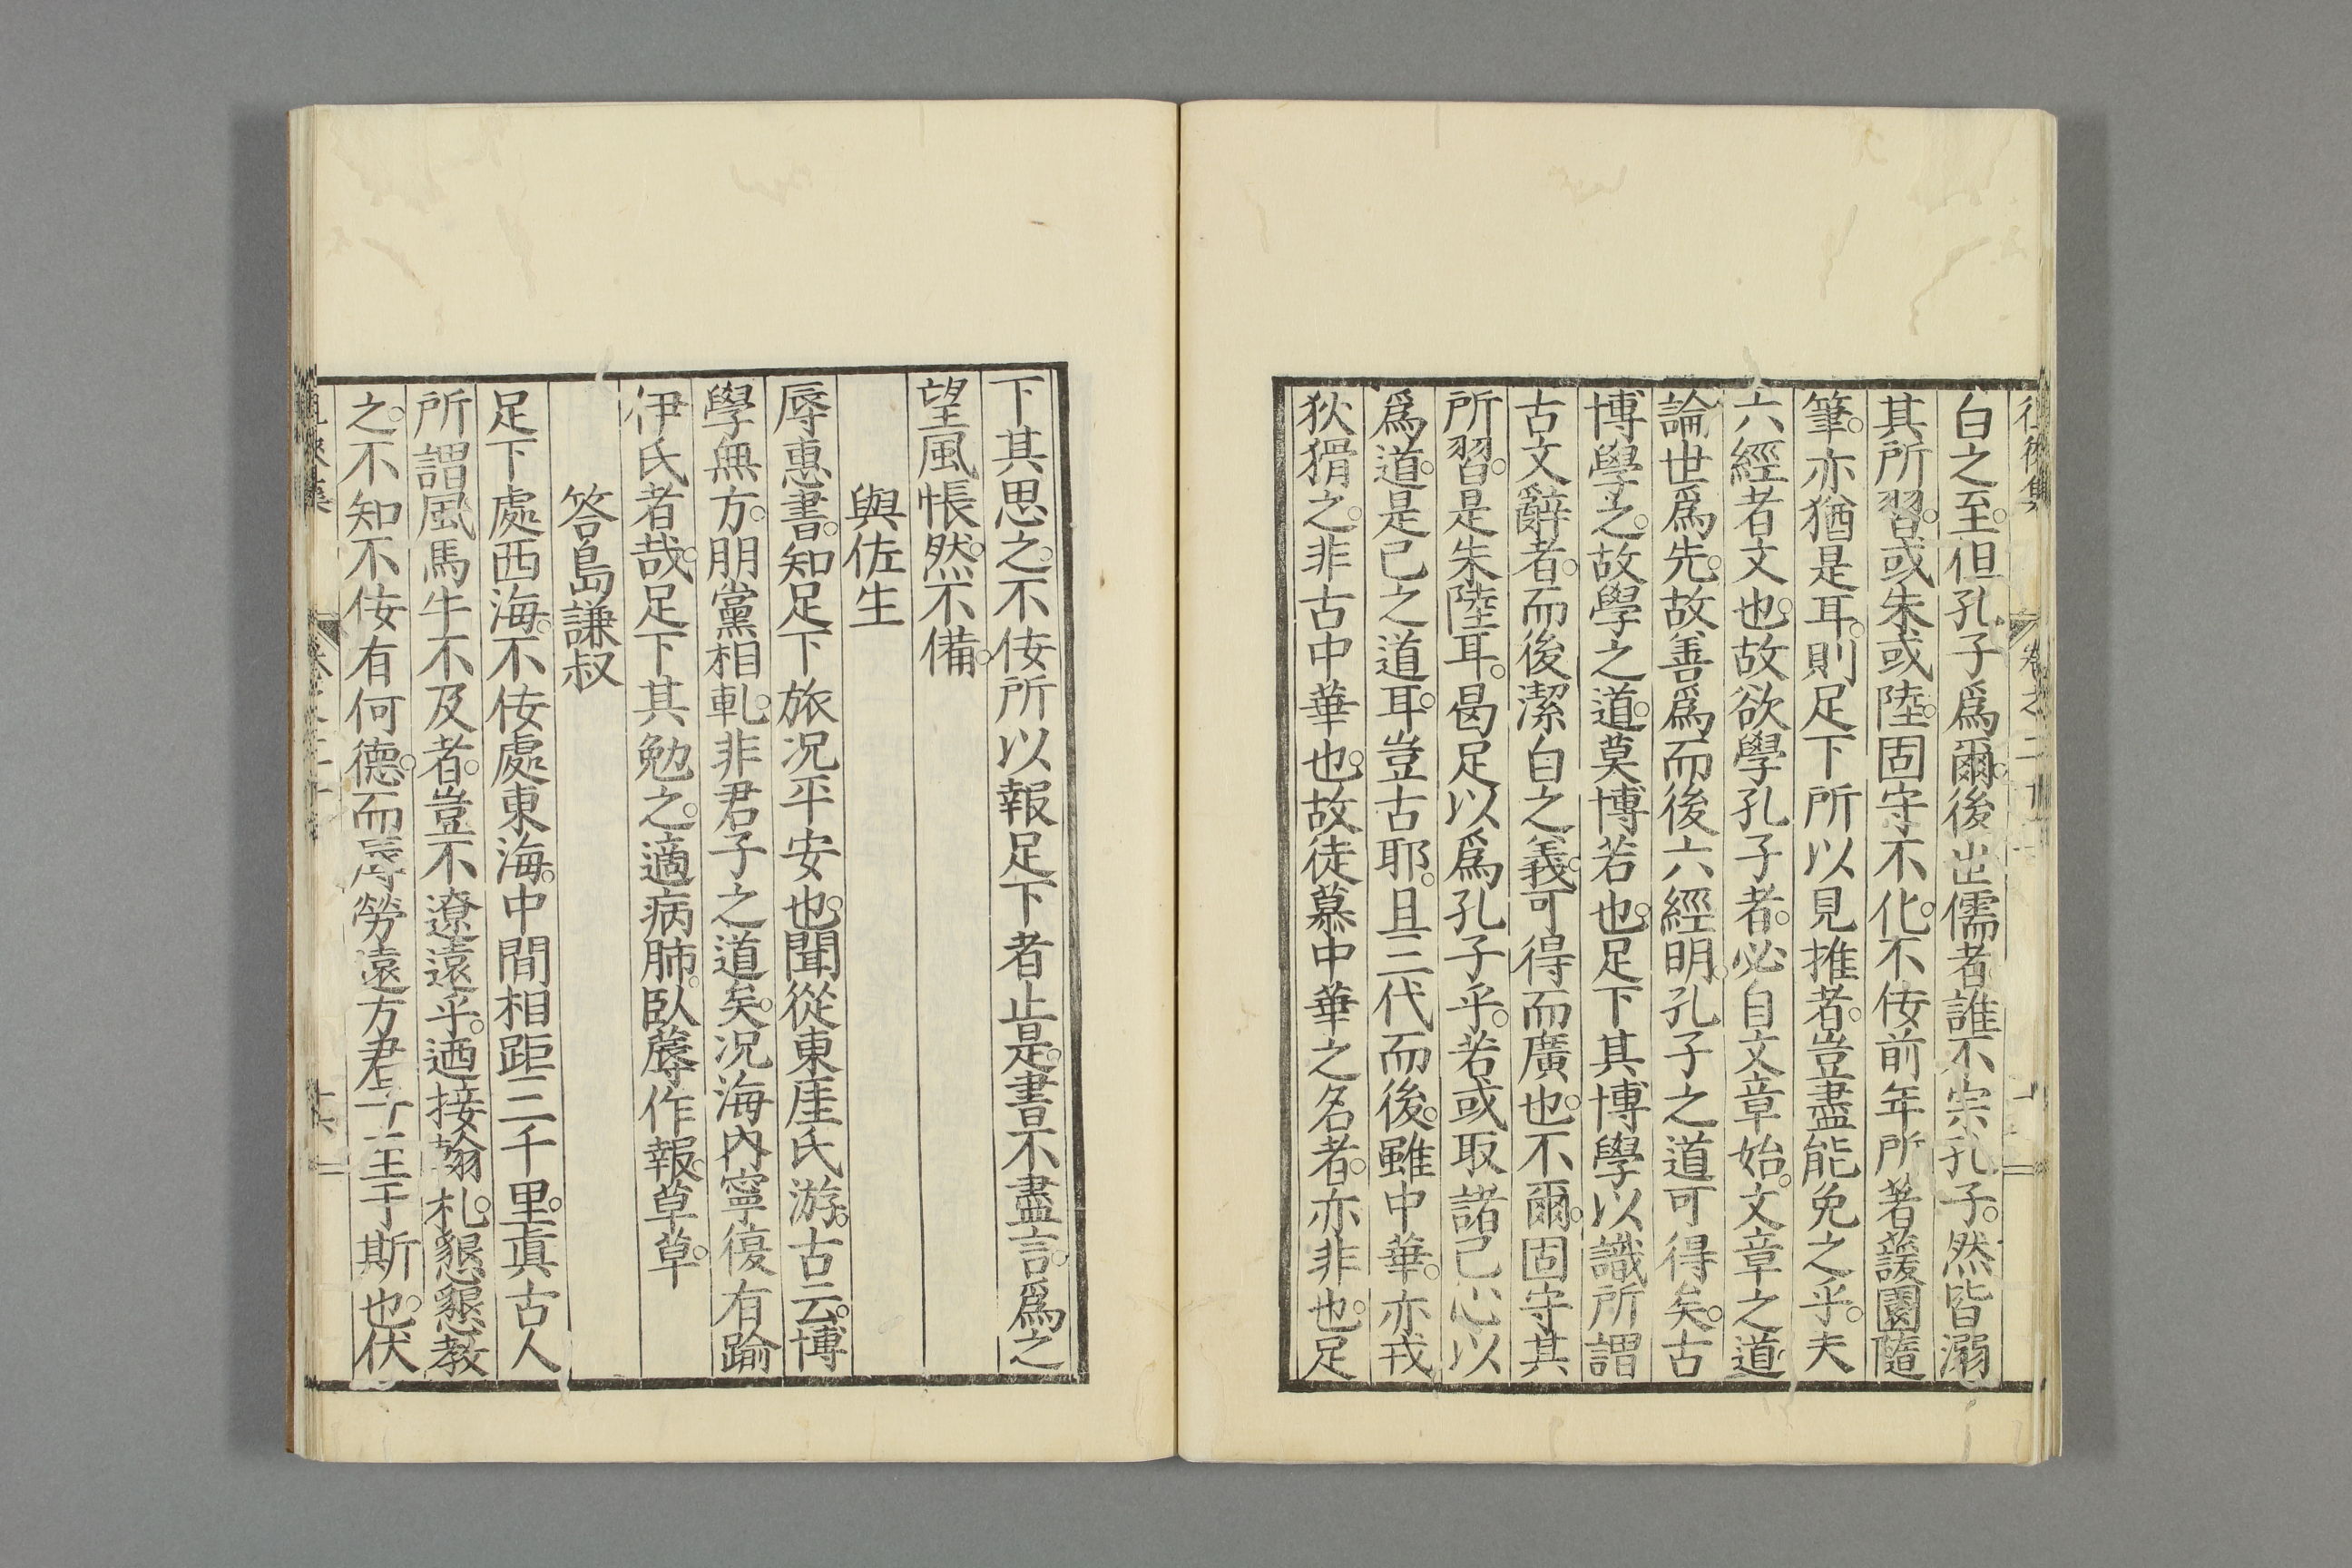 白之至。但孔子爲爾。後世儒者誰不宗孔子。然皆溺
其所習。或朱或陸。固守不化。不佞前年所著蘐園隨
筆。亦猶是耳。則足下所以見推者。豈盡能免之乎。夫
六經者文也。故欲學孔子者。必自文章始。文章之道
論世爲先。故善爲而後六經明。孔子之道可得矣。古
博學之。故學之道。莫博若也。足下其博學以識所謂
古文辭者。而後潔白之義。可得而廣也。不爾。固守其
所習。是朱陸耳。曷足以爲孔子乎。若或取諸己心以
爲道。是己之道耳。豈古耶。且三代而後。雖中華。亦戎
狄猾之。非古中華也。故徒慕中華之名者。亦非也。足
下其思之。不佞所以報足下者止是。書不盡言。爲之
望風悵然。不備。
與佐生
辱惠書。知足下旅況平安也。聞從東厓氏游。古云。博
學無方。朋黨相軋。非君子之道矣。況海內寧復有踰
伊氏者哉。足下其勉之。適病肺。臥蓐作報。草草。
答島謙叔
足下處西海。不佞處東海。中間相距三千里。眞古人
所謂風馬牛不及者。豈不遼遠乎。迺接翰札。懇懇教
之。不知不佞有何德。而辱勞遠方君子至于斯也。伏